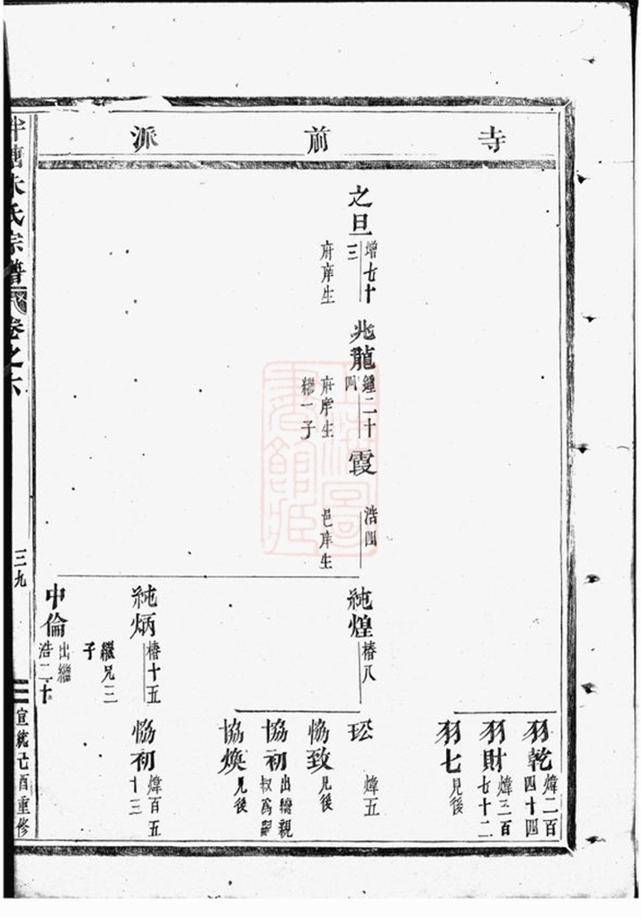 寺前派
之旦
增七十三
府庠生
兆龍
鍾二十四
府庠生
繼一子
霞
浩四
邑庠生
純煌
椿八
純炳
椿十五
繼兄三子
中倫
出繼浩二十
羽乾
煒二百四十四
羽財
煒三百七十二
羽七
見後
玜
煒五
協致
見後
協初
出繼親叔為嗣
協煥
見後
協初
煒百五十三
朱氏宗譜
卷之六
三九
宣統己酉重修